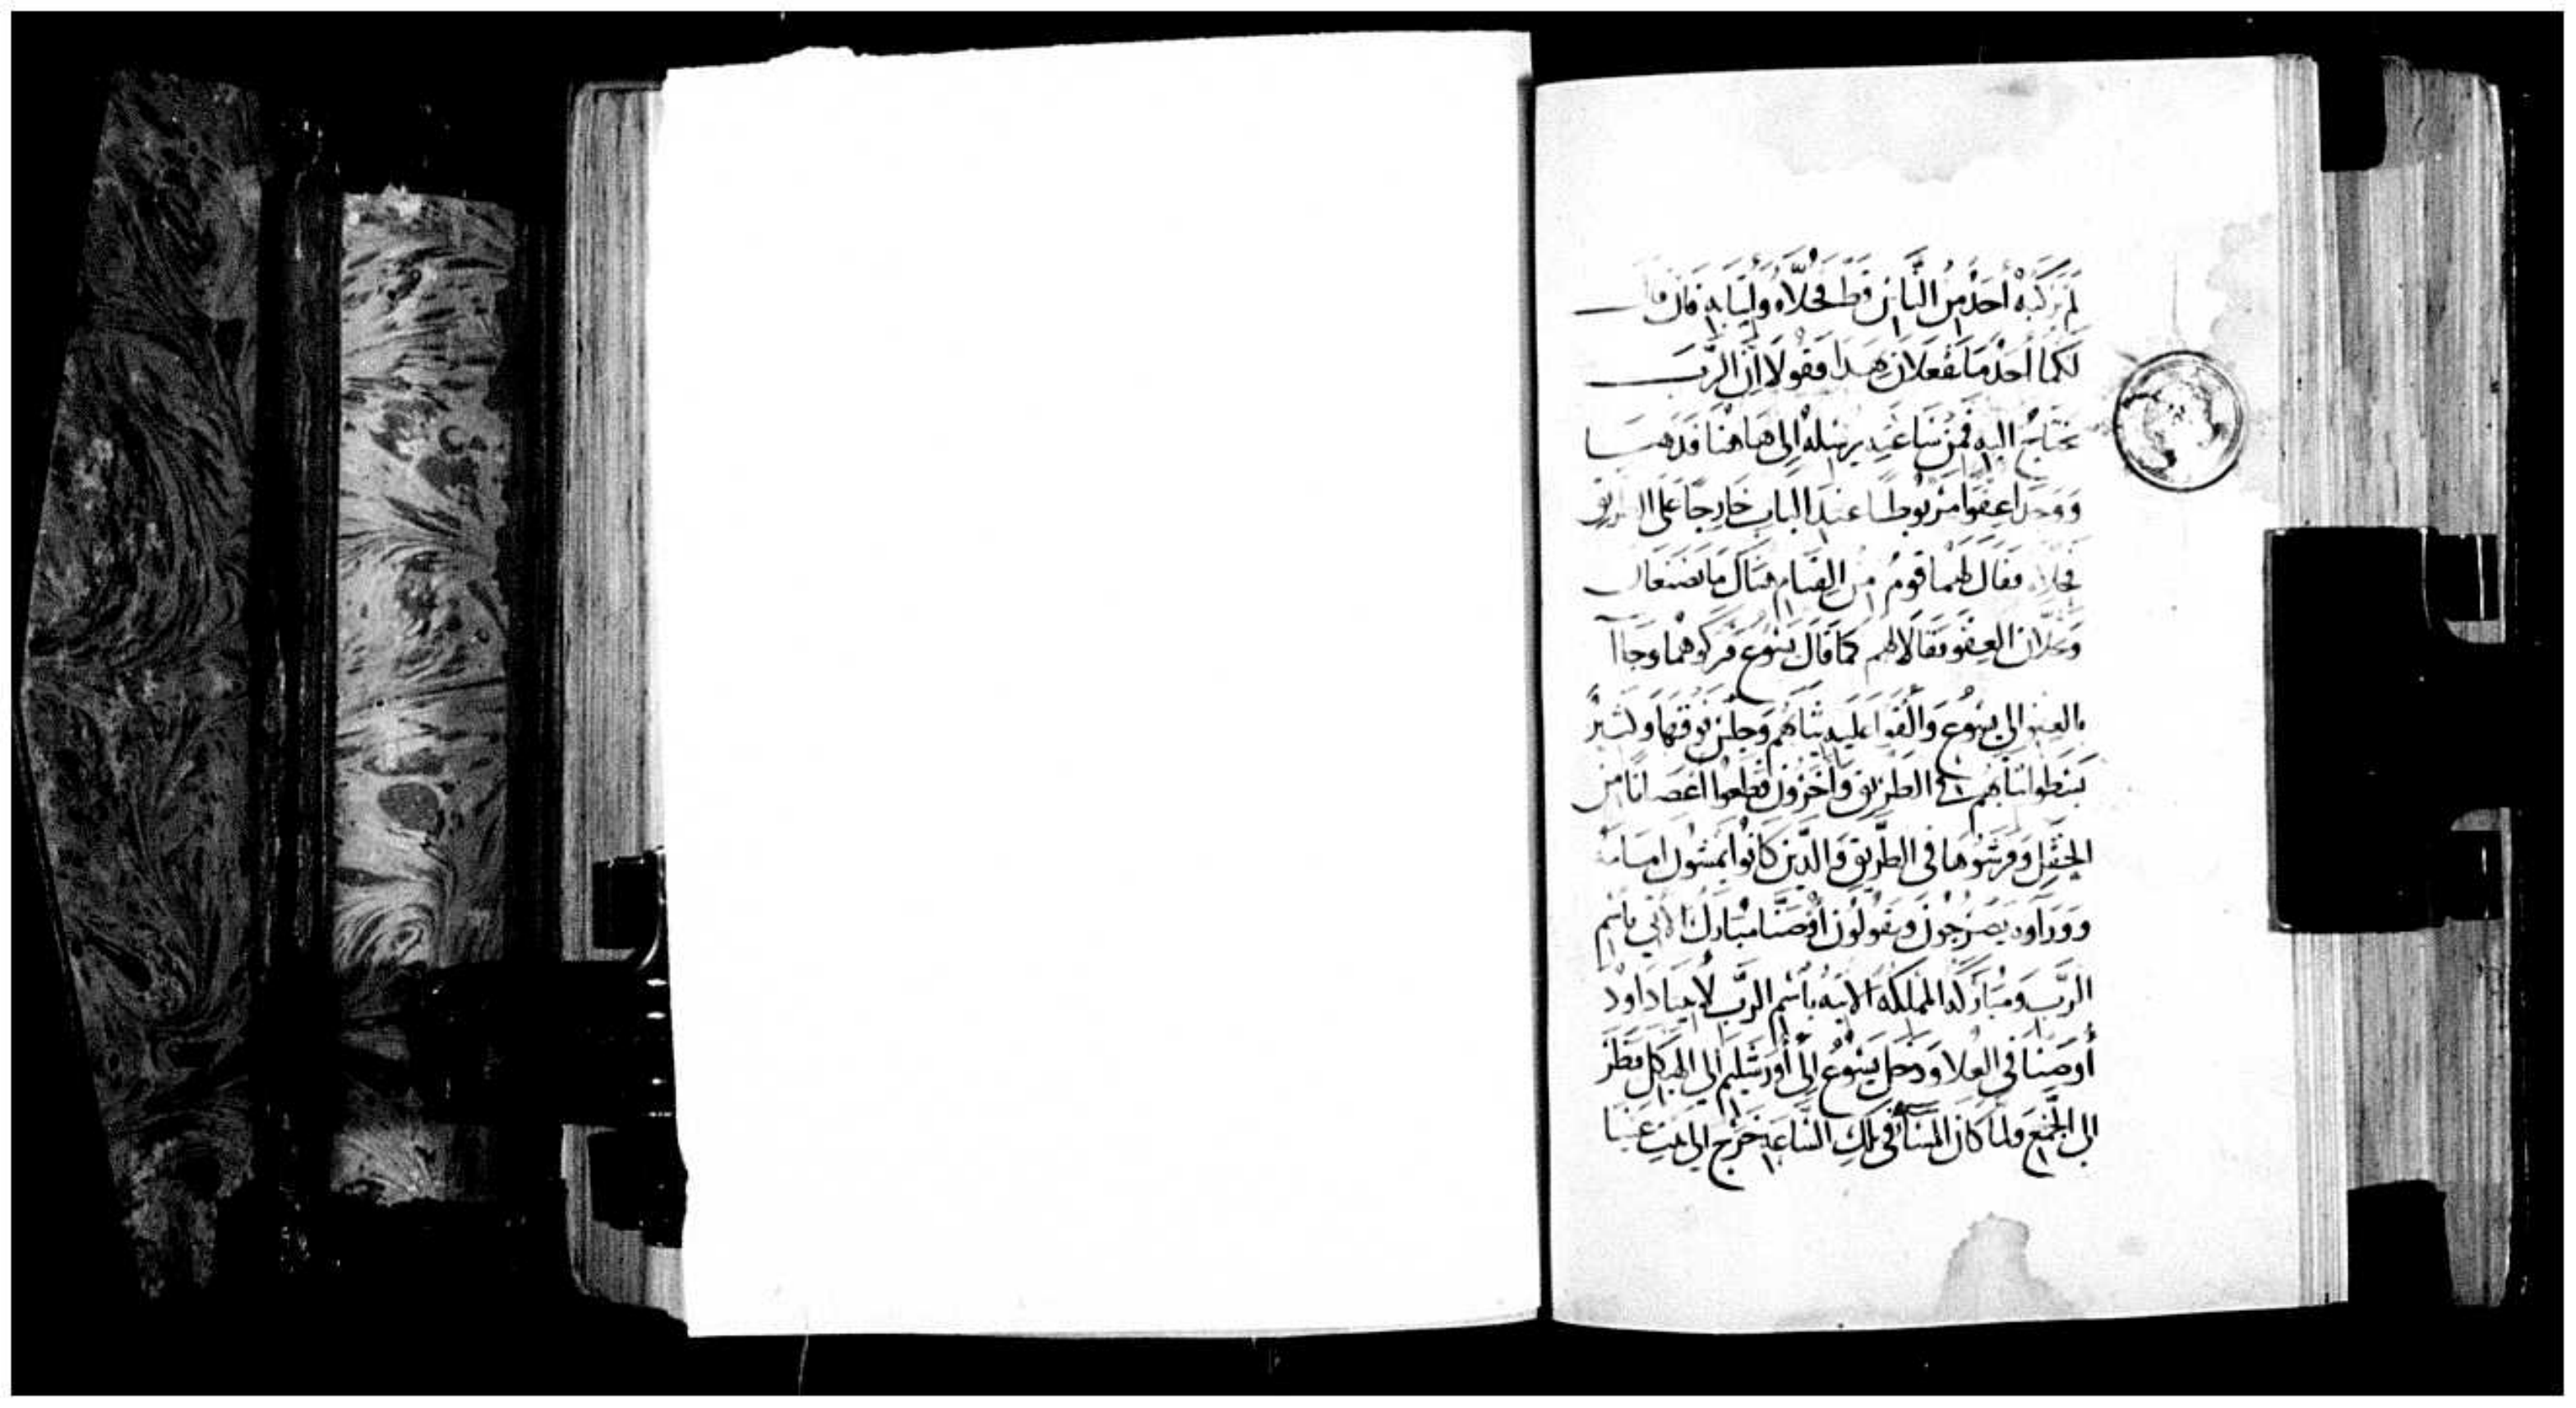 لَمْ يَرْكَبْهُ أَحَدٌ مِنَ النَّاسِ قَطُّ فَحُلَّاهُ وَأْتِيَا بِهِ فَإِن قال
لَكُمَا أَحَدٌ مَا تَفْعَلَانِ هَذَا فَقُولَا إِنَّ الرَّبَّ
مُحْتَاجٌ إليه فَمِنْ سَاعَتِهِ يُرْسِلْهُ إِلَى هَاهُنَا فَذَهَبَا
وَوَجَدَا عِفْوًا مَرْبُوطًا عِنْدَ الْبَابِ خَارِجًا عَلَى الطريق
فحلاه فَقَالَ لَهُمَا قَوْمٌ مِنَ الْقِيَامِ هُنَاكَ مَا تَصْنَعَانِ
وَتَحُلَّانِ الْعِفْوَ فَقَالَا لَهُمْ كَمَا قَالَ يَسُوعُ فَتَرَكُوهُمَا وَجَاآ
بالعِفْوِ إِلَى يَسُوعَ وَأَلْقَوْا عَلَيْهِ ثِيَابَهُمْ وَجَلَسَ فَوْقَهَا وَكَثِيرٌ
بَسَطُوا ثِيَابَهُمْ فِي الطَّرِيقِ وَآخَرُونَ قَطَعُوا أَغْصَانًا مِنَ
الْحَقْلِ وَفَرَشُوهَا فِي الطَّرِيقِ وَالَّذِينَ كَانُوا يَمْشُونَ أَمَامَهُ
وَوَرَاءَهُ يَصْرُخُونَ وَيَقُولُونَ أُوصَنَّا مُبَارَكٌ الْآتِي بِاسْمِ
الرَّبِّ وَمُبَارَكَةٌ الْمَمْلَكَةُ الْآتِيَةُ بِاسْمِ الرَّبِّ لِأَبِينَا دَاوُدَ
أُوصَنَّا فِي الْعُلَا وَدَخَلَ يَسُوعُ إِلَى أُورَشَلِيمَ إِلَى الْهَيْكَلِ فَنَظَرَ
إِلَى الْجَمِيعِ وَلَمَّا كَانَ الْمَسَاءُ فِي تِلْكَ السَّاعَةِ خَرَجَ إِلَى بَيْتِ عَنْيَا